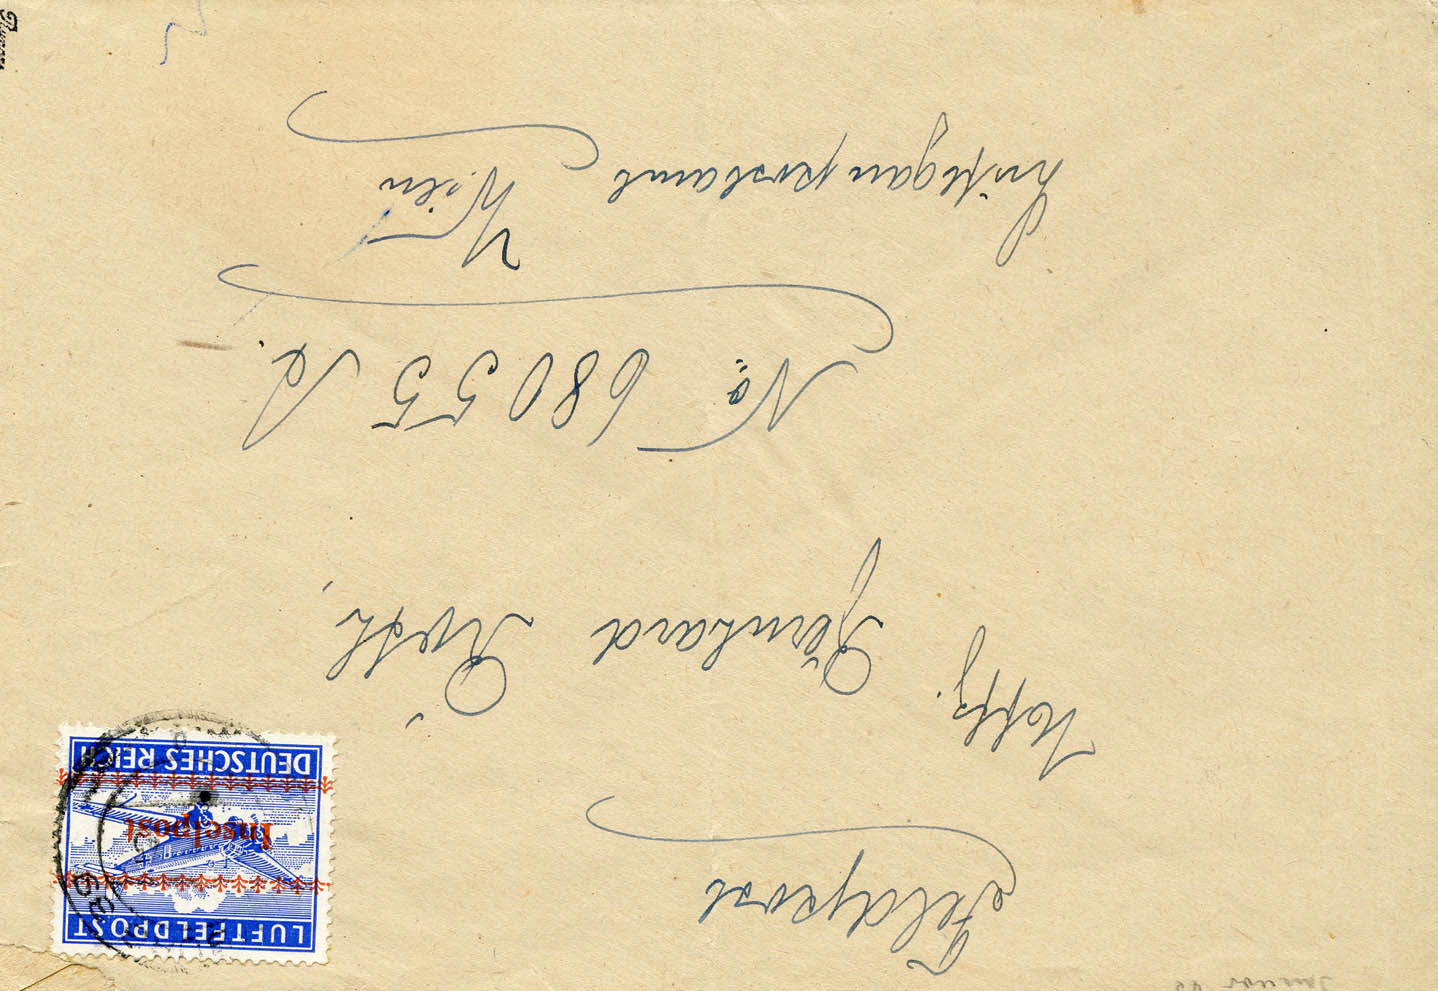 Feldpost
Uffz. Bernhard Roth,
No. 68055 Sd.
Luftgaupostamt Wien
LUFTFELDPOST
Inselpost
DEUTSCHES REICH
Januar 45